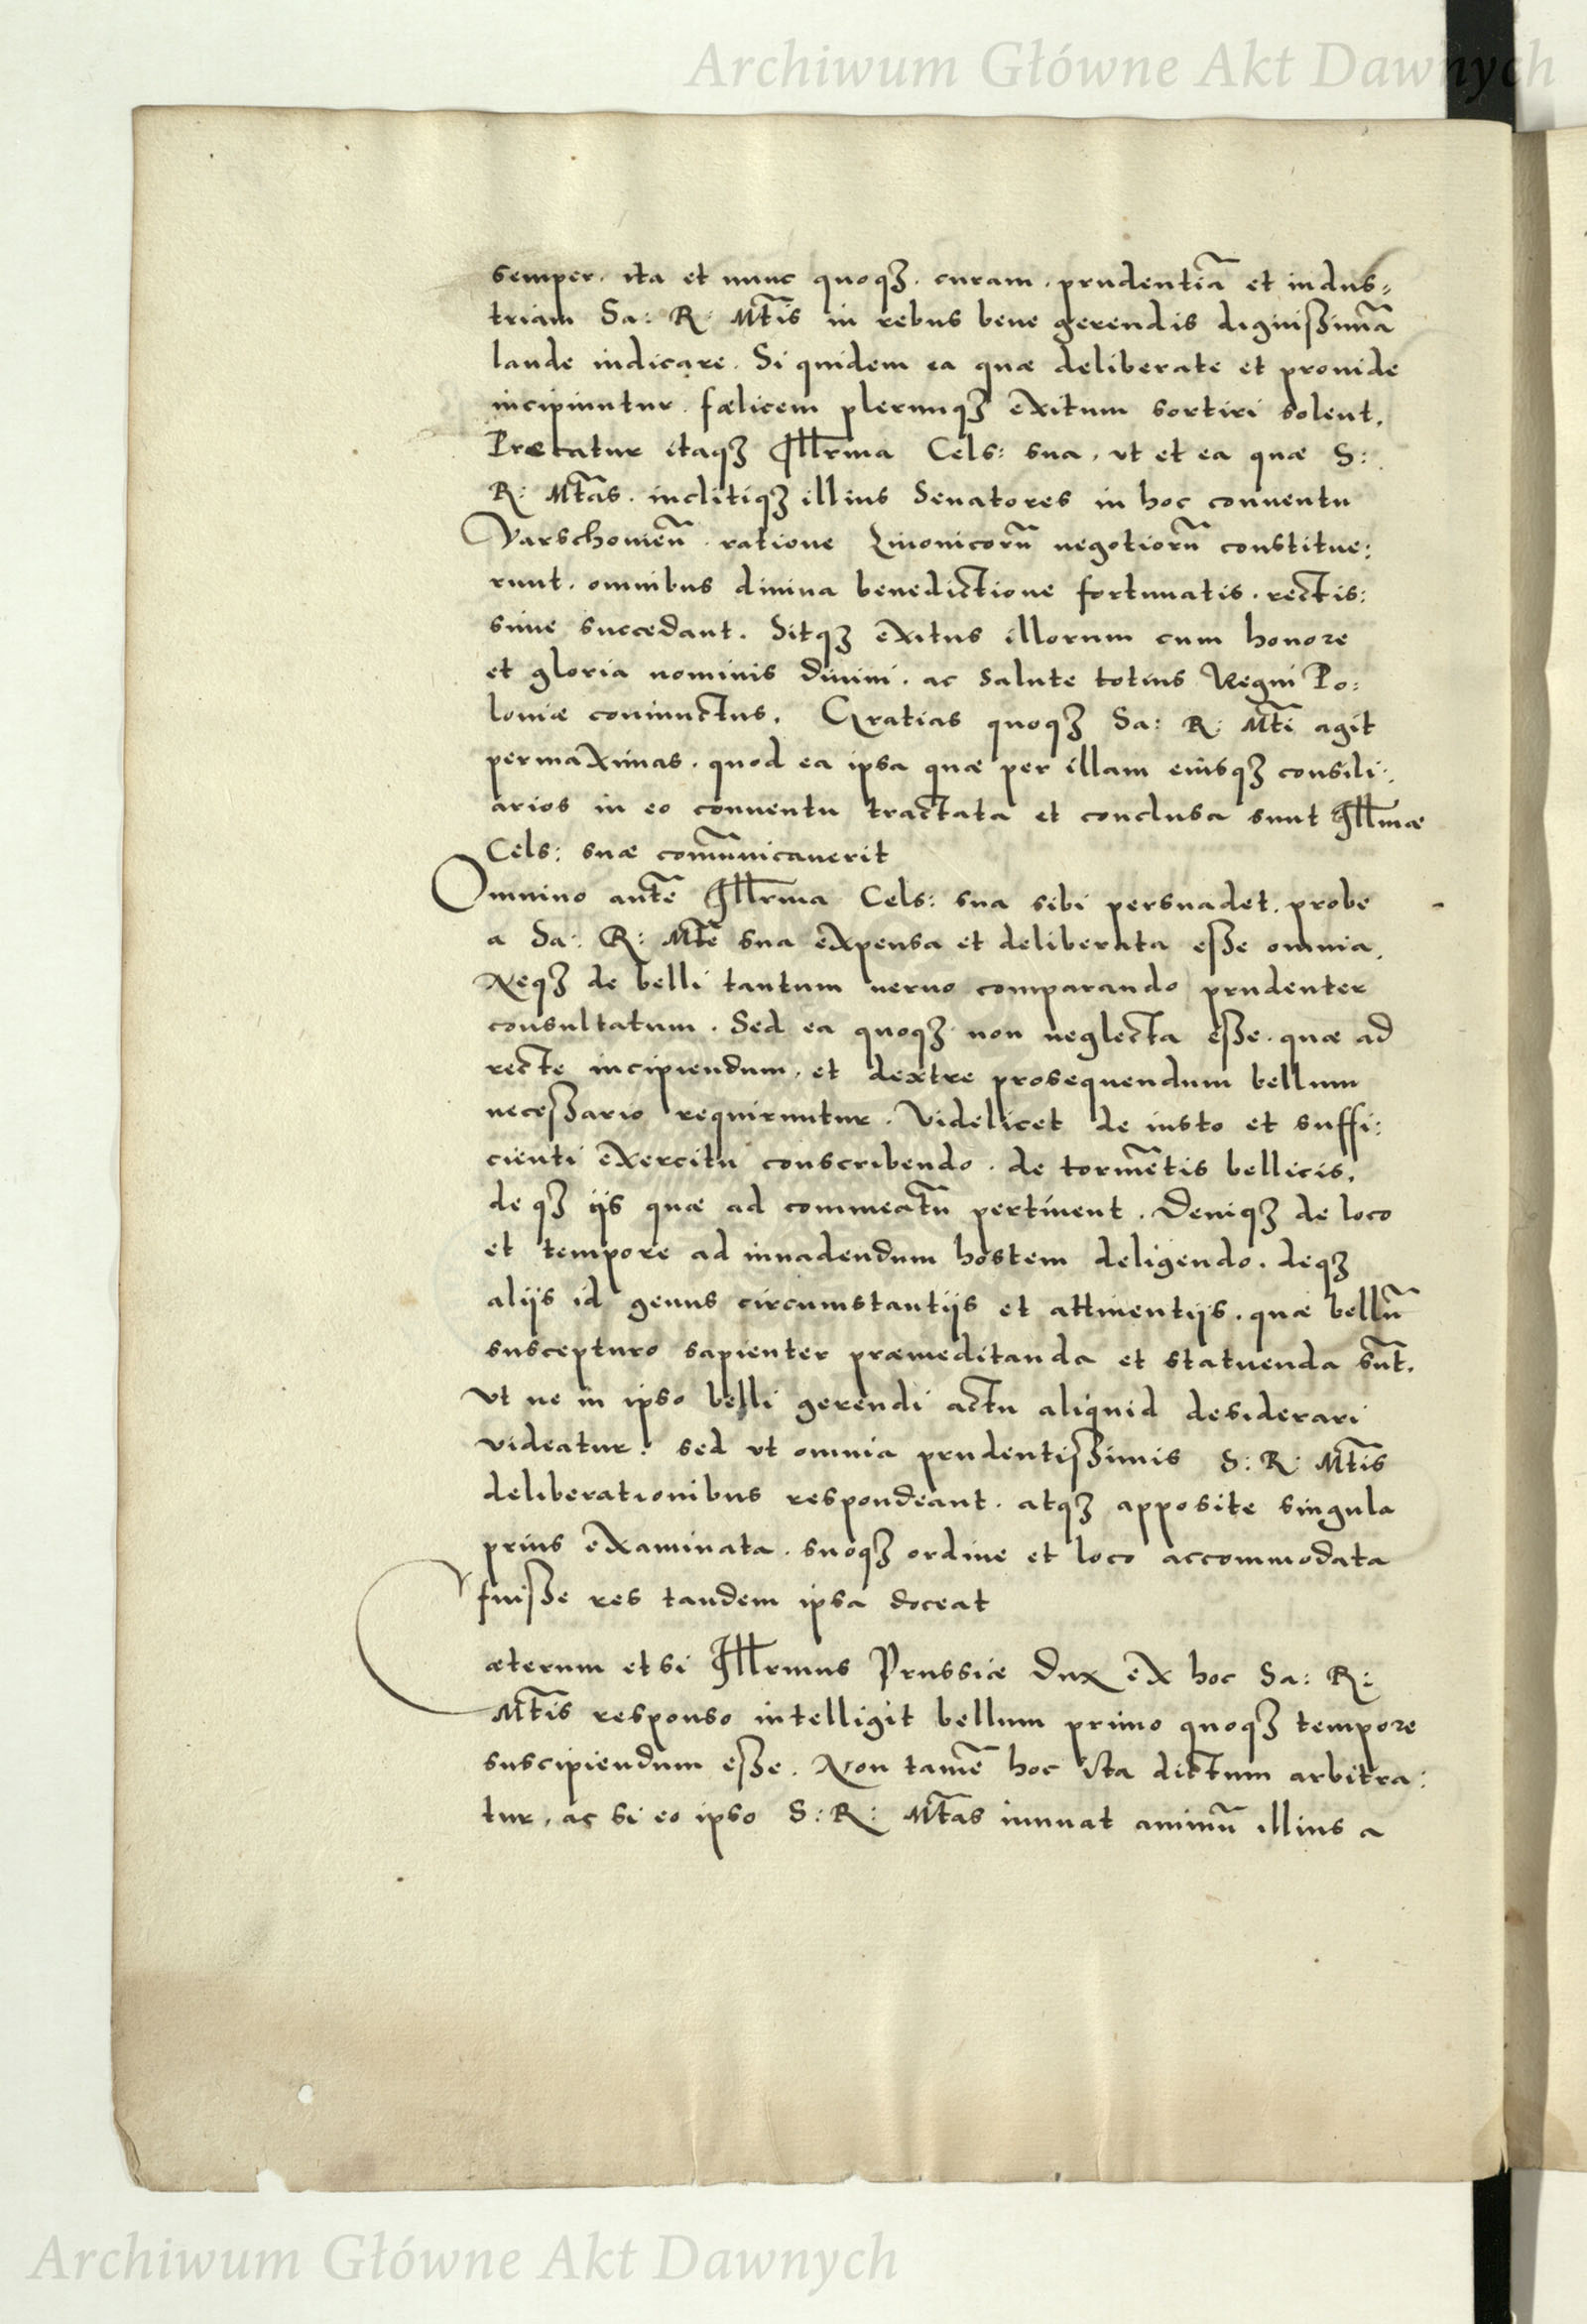 Archiwum Główne Akt Dawnych
semper. ita et nunc quoqꝫ. curam. prudentiā et indus⸗
triam Sa: R: Mt̄is in rebus bene gerendis dignißimā
laude indicare. Si quidem ea quæ deliberate et prouide
incipiuntur. fælicem plerunqꝫ exitum sortiri solent.
Præcatur itaqꝫ Illr̄ma Cels: sua, ut et ea quæ S:
R: Mt̄as. inclitiqꝫ illius Senatores in hoc conuentu
Varschouieñ. ratione Liuonicorū negotiorū constitue:
runt. omnibus diuina benedictione fortunatis. rectis:
sime succedant. Sitqꝫ exitus illorum cum honore
et gloria nominis diuini. ac salute totius Regni Po:
loniæ coniunctus. Gratias quoqꝫ Sa: R: Mt̄i agit
permaximas. quod ea ipsa quæ per illam eiusqꝫ consili:
arios in eo conuentu tractata et conclusa sunt Ill̄mæ
Cels: suæ com̄unicauerit
Omnino autē Illr̄ma Cels: sua sibi persuadet. probe
a Sa: R: Mt̄e sua expensa et deliberata eße omnia.
Neqꝫ de belli tantum neruo comparando prudenter
consultatum. Sed ea quoqꝫ non neglecta eße. quæ ad
recte incipiendum, et dextre prosequendum bellum
neceßario requiruntur. Videlicet de iusto et suffi:
cienti exercitu conscribendo. de tormētis bellicis.
de qꝫ ijs quæ ad commeatū pertinent. Deniqꝫ de loco
et tempore ad inuadendum hostem deligendo. deqꝫ
alijs id genus circumstantijs et attinentijs. quæ bellū
suscepturo sapienter præmeditanda et statuenda sūt.
Ut ne in ipso belli gerendi actu aliquid desiderari
videatur. sed ut omnia prudentißimis S: R: Mt̄is
deliberationibus respondeant. atqꝫ apposite singula
prius examinata. suoqꝫ ordine et loco accommodata
fuiße res tandem ipsa doceat
Cæterum etsi Illr̄mus Prussiæ Dux ex hoc Sa: R:
Mt̄is responso intelligit bellum primo quoqꝫ tempore
suscipiendum eße. Non tamē hoc ita dictum arbitra:
tur, ac si eo ipso S: R: Mt̄as innuat animū illius a
Archiwum Główne Akt Dawnych